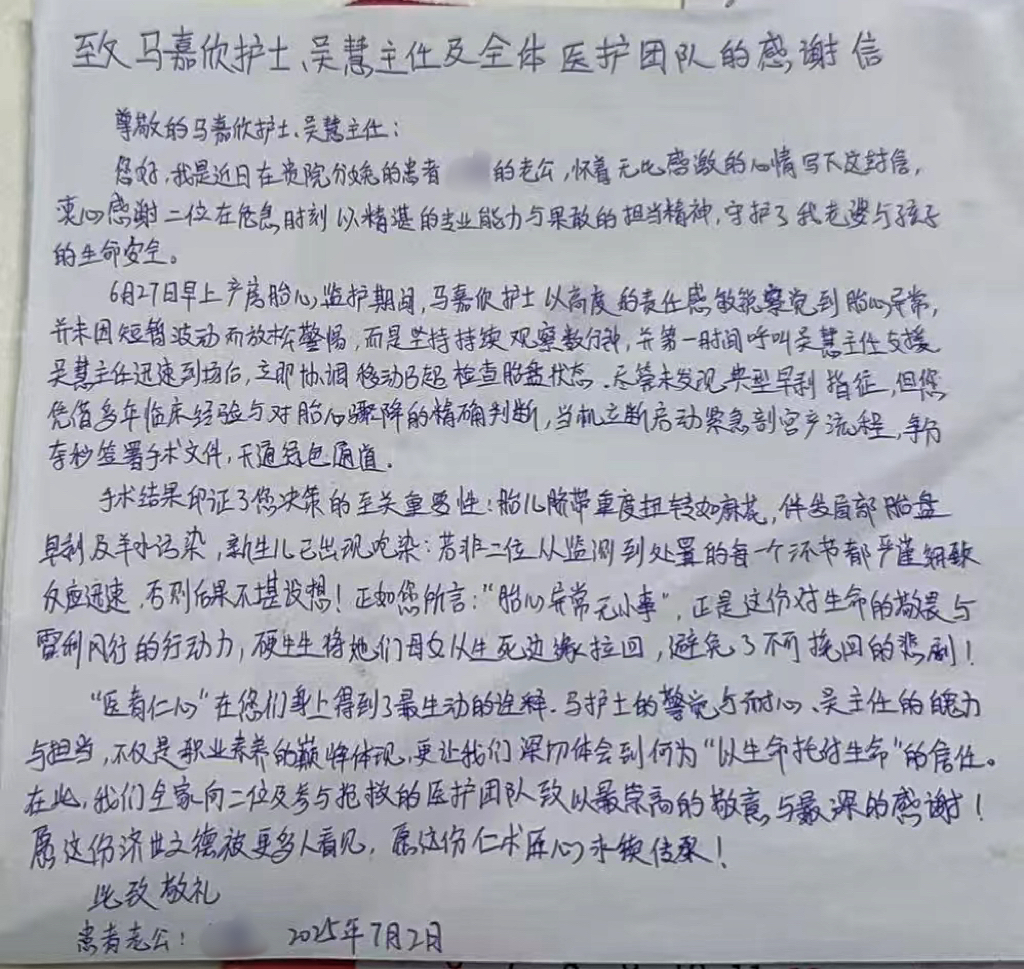 致 马嘉欣护士、吴慧主任及全体医护团队的感谢信
尊敬的马嘉欣护士、吴慧主任:
您好,我是近日在贵院分娩的患者 的老公,怀着无比感激的心情写下这封信,
衷心感谢二位在危急时刻以精湛的专业能力与果敢的担当精神,守护了我老婆与孩子
的生命安全。
6月27日早上产房胎心监护期间,马嘉欣护士以高度的责任感敏锐察觉到胎心异常,
并未因短暂波动而放松警惕,而是坚持持续观察数分钟,并第一时间呼叫吴慧主任支援
吴慧主任迅速到场后,立即协调移动B超检查胎盘状态、尽管未发现典型早剥指征,但您
凭借多年临床经验与对胎心骤降的精确判断,当机立断启动紧急剖宫产流程,争分
夺秒签署手术文件,开通绿色通道.
手术结果印证了您决策的至关重要性:胎儿脐带重度扭转如麻花,伴发局部胎盘
早剥及羊水污染,新生儿已出现吮染:若非二位从监测到处置的每一个环节都严谨细致
反应迅速,否则后果不堪设想!正如您所言:“胎心异常无小事”,正是这份对生命的敬畏与
雷利风行的行动力,硬生生将她们母女从生死边缘拉回,避免了不可挽回的悲剧!
“医者仁心”在您们身上得到了最生动的诠释.马护士的警觉与耐心、吴主任的魄力
与担当,不仅是职业素养的巅峰体现,更让我们深切体会到何为“以生命托付生命”的信任。
在此,我们全家向二位及参与抢救的医护团队致以最崇高的敬意与最深的感谢!
愿这份济世之德被更多人看见,愿这份仁术医心永续传承!
此致敬礼
患者老公: 2025年7月2日